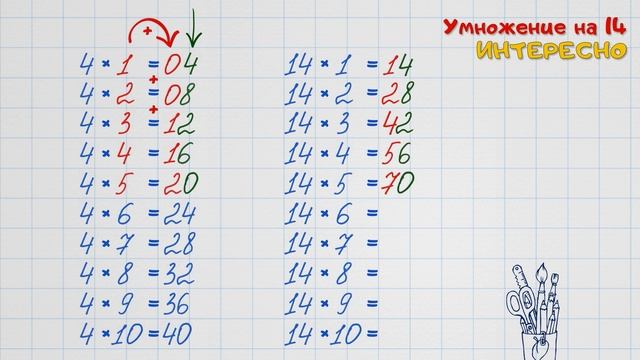 Умножение на 14
ИНТЕРЕСНО
+
4 * 1 = 04
+
4 * 2 = 08
+
4 * 3 = 12
4 * 4 = 16
4 * 5 = 20
4 * 6 = 24
4 * 7 = 28
4 * 8 = 32
4 * 9 = 36
4 * 10 = 40
14 * 1 = 14
14 * 2 = 28
14 * 3 = 42
14 * 4 = 56
14 * 5 = 70
14 * 6 =
14 * 7 =
14 * 8 =
14 * 9 =
14 * 10 =